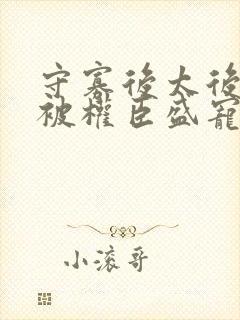 守寡後太後
被權臣盛寵
小滾哥